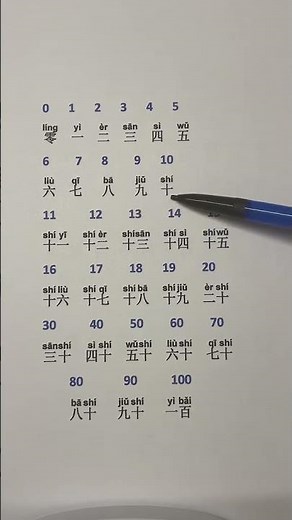 0 1 2 3 4 5
líng yì èr sān sì wǔ
零 一 二 三 四 五
6 7 8 9 10
liù qī bā jiǔ shí
六 七 八 九 十
11 12 13 14
shí yī shí èr shísān shí sì shíwǔ
十一 十二 十三 十四 十五
16 17 18 19 20
shí liù shí qī shí bā shí jiǔ èr shí
十六 十七 十八 十九 二十
30 40 50 60 70
sānshí sì shí wǔshí liù shí qī shí
三十 四十 五十 六十 七十
80 90 100
bā shí jiǔ shí yì bǎi
八十 九十 一百